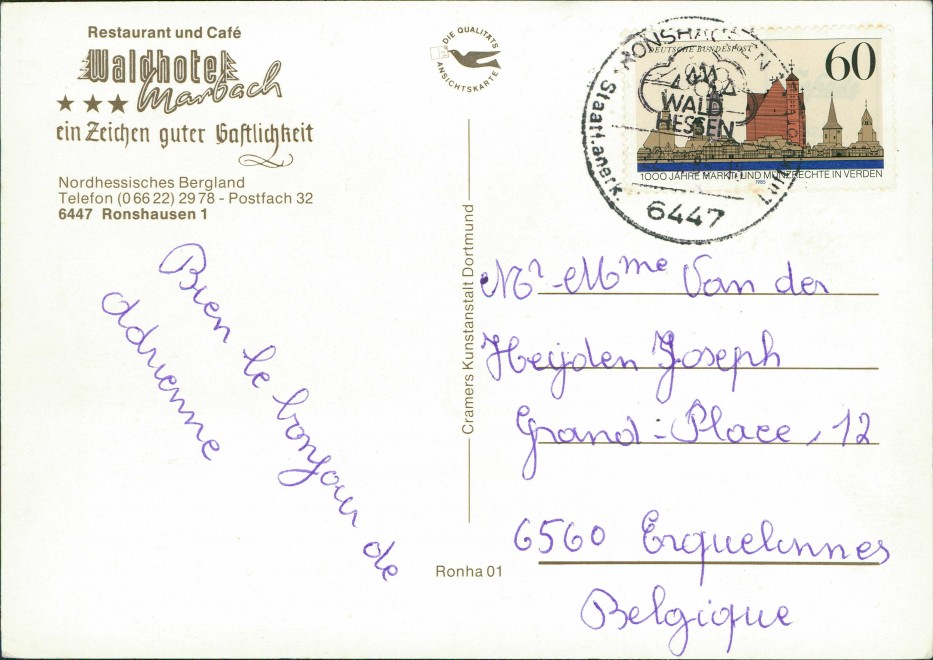 Restaurant und Café
Waldhotel
Marbach
ein Zeichen guter Gastlichkeit
Nordhessisches Bergland
Telefon (0 66 22) 29 78 - Postfach 32
6447 Ronshausen 1
DIE QUALITÄTS
ANSICHTSKARTE
DEUTSCHE BUNDESPOST
60
1000 JAHRE MARKT- UND MÜNZRECHTE IN VERDEN
1985
RONSHAUSEN
IM
WALD
HESSEN
Staatl. anerk.
6447
Cramers Kunstanstalt Dortmund
Bien le bonjour de
Adrienne
Mr-Mme Van der
Heyden Joseph
Grand-Place, 12
6560 Erquelinnes
Belgique
Ronha 01